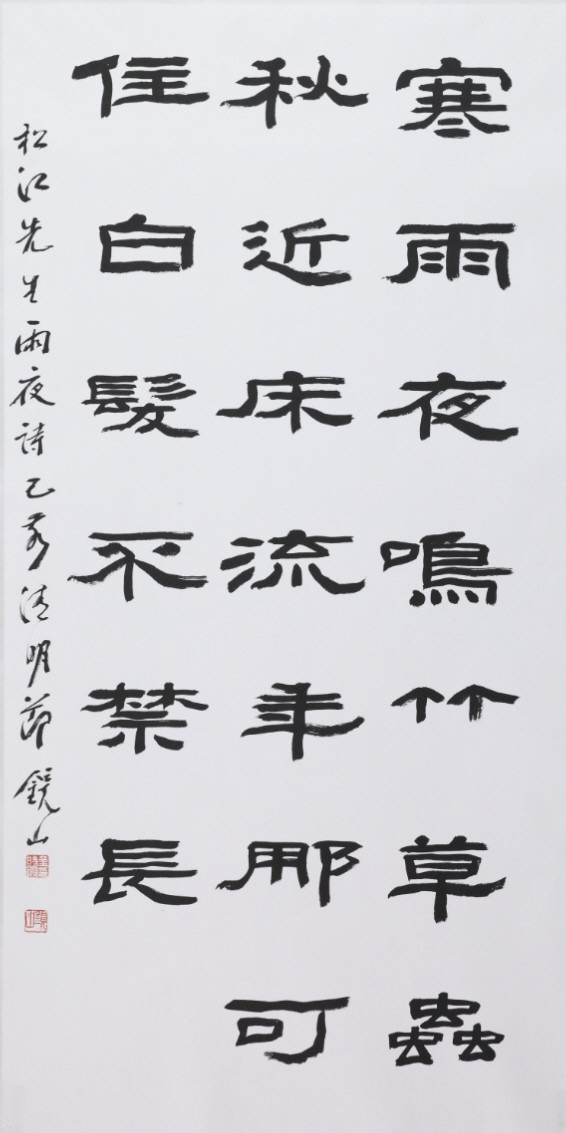 寒雨夜鳴竹草蟲
秋近床流年那可
住白髮不禁長
松江先生雨夜詩己亥清明節鏡山